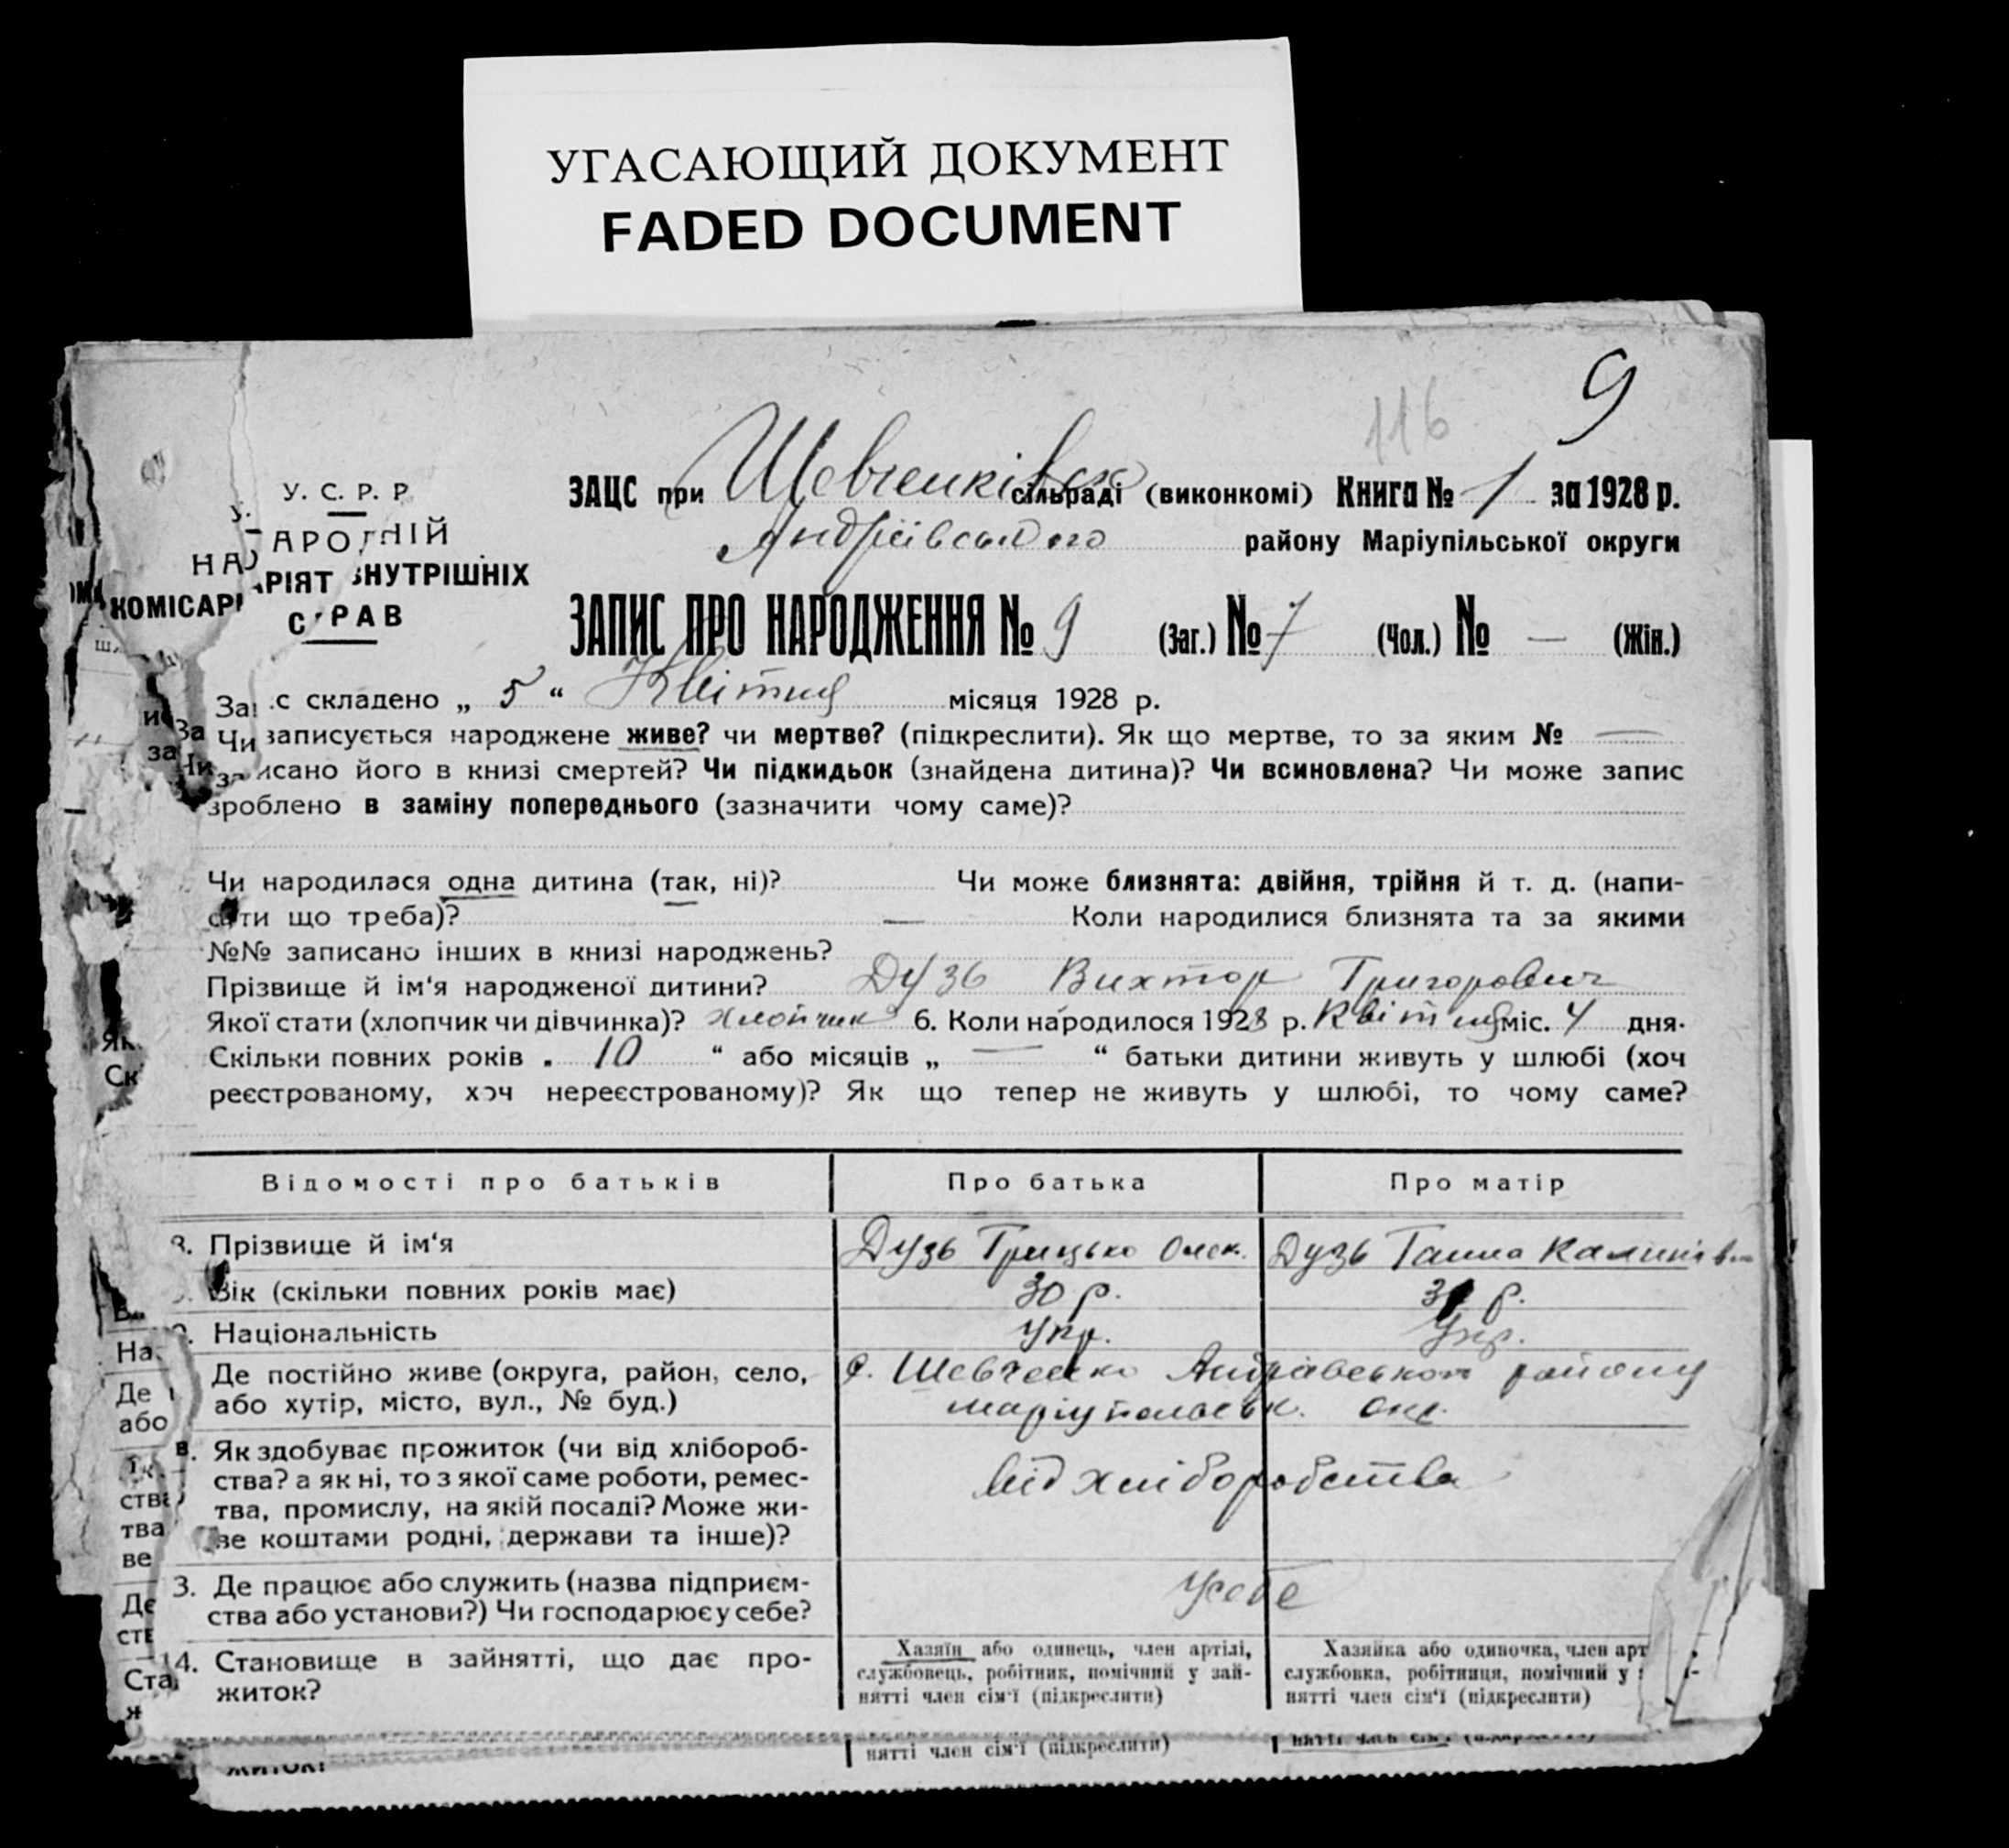 УГАСАЮЩИЙ ДОКУМЕНТ
FADED DOCUMENT
9
116
У. С. Р. Р
ЗАЦС при Шевченківск сільраді (виконкомі) Книга № 1 за 1928 р.
Андріївського району Маріупільської округи
НАРОДНІЙ
КОМІСАРІЯТ ВНУТРІШНІХ
СПРАВ
ЗАПИС ПРО НАРОДЖЕННЯ № 9 (Заг.) № 7 (Чол.) № — (Жін.)
Запис складено „ 5 “ Квітня місяця 1928 р.
Чи записується народжене живе? чи мертве? (підкреслити). Як що мертве, то за яким № —
записано його в книзі смертей? Чи підкидьок (знайдена дитина)? Чи всиновлена? Чи може запис
зроблено в заміну попереднього (зазначити чому саме)?
Чи народилася одна дитина (так, ні)? Чи може близнята: двійня, трійня й т. д. (напи-
сати що треба)? — Коли народилися близнята та за якими
№№ записано інших в книзі народжень?
Прізвище й ім‘я народженої дитини? Дузь Вихтор Григорович
Якої стати (хлопчик чи дівчинка)? Хлопчик 6. Коли народилося 1928 р. Квітня міс. 4 дня.
Скільки повних років „ 10 “ або місяців „ — “ батьки дитини живуть у шлюбі (хоч
реєстрованому, хоч нереєстрованому)? Як що тепер не живуть у шлюбі, то чому саме?
Відомості про батьків Про батька Про матір
8. Прізвище й ім‘я Дузь Грицько Олек. Дузь Ганна Калинівн
Вік (скільки повних років має) 30 р. р.
Національність Укр. Укр.
Де постійно живе (округа, район, село, с. Шевченко Андрієвського району
або хутір, місто, вул., № буд.) Маріупольськ. окр.
Як здобуває прожиток (чи від хлібороб-
ства? а як ні, то з якої саме роботи, ремес- від хліборобства
тва, промислу, на якій посаді? Може жи-
ве коштами родні, держави та інше)?
3. Де працює або служить (назва підприєм- У себе
ства або установи?) Чи господарює у себе?
14. Становище в зайнятті, що дає про-
житок?
Хазяїн або одинець, член артілі,
службовець, робітник, помічний у зай-
нятті член сім‘ї (підкреслити)
Хазяйка або одиночка, член арт
службовка, робітниця, помічний у
нятті член сім‘ї (підкреслити)
нятті член сім‘ї (підкреслити)